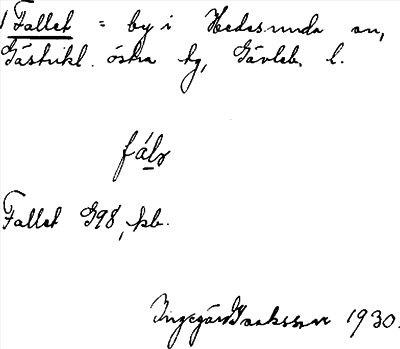 1 Fallet = by i Hedesunda sn,
Gästrikl. östra tg, Gävleb. l.
fálə
Fallet G98, kb.
Ingegärd Isaksson 1930.